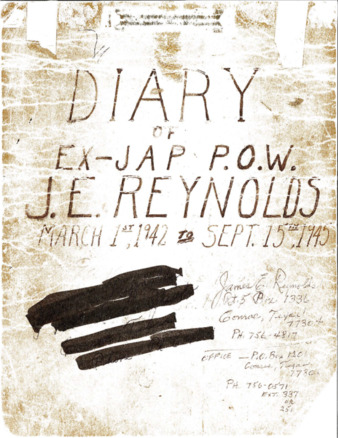 DIARY
OF
EX-JAP P.O.W.
J.E. REYNOLDS
MARCH 1ST, 1942 TO SEPT. 15TH, 1945
James E. Reynolds
Rt. 5 Box 1336
Conroe, Texas
PH. 756-4817
OFFICE — P.O. Box 1201
Conroe, Texas
PH 756-0571
EXT. 337
OR
250